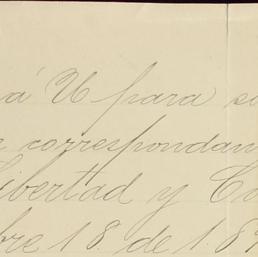 á U para
correspondan
Libertad y
bre 18 de 189